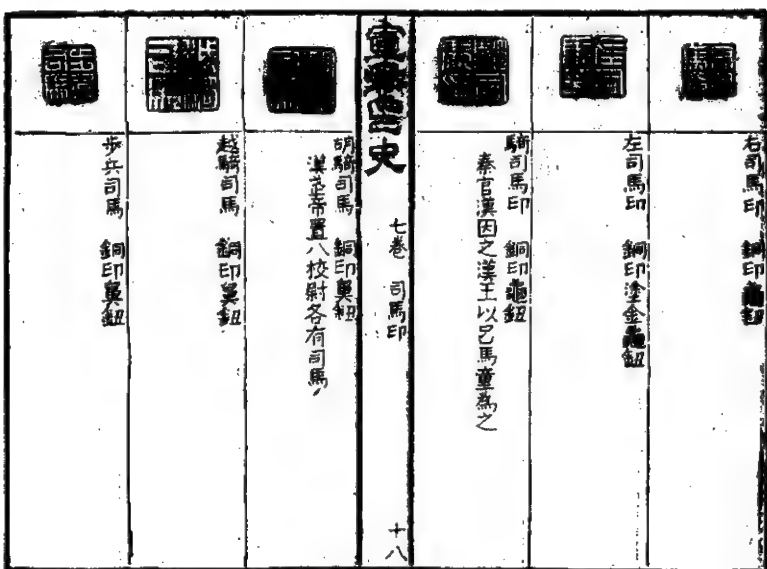 右司馬印 銅印龜鈕
左司馬印 銅印塗金龜鈕
騎司馬印 銅印龜鈕
秦官漢因之漢王以呂馬童為之
宣龢印史 七卷 司馬印 十八
胡騎司馬 銅印鼻鈕
漢武帝置八校尉各有司馬
越騎司馬 銅印鼻鈕
步兵司馬 銅印鼻鈕